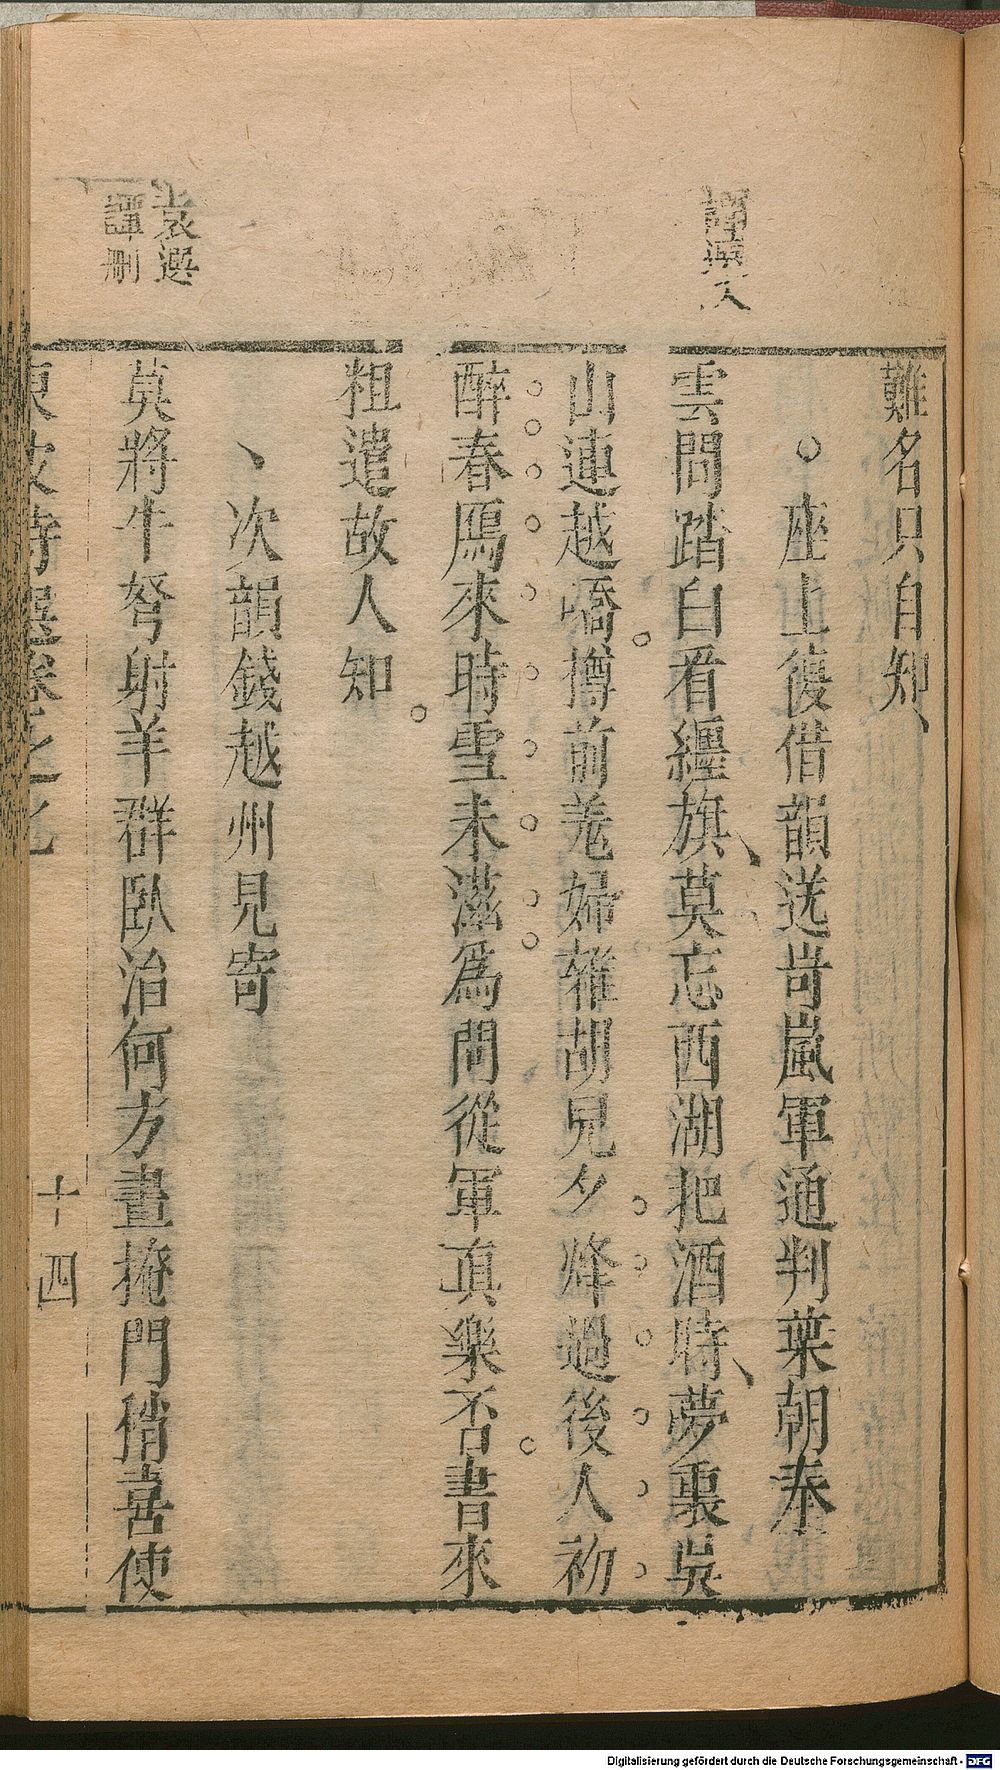 難名只自知
座上復借韻送岢嵐軍通判葉朝奉
雲間踏白看纏旗莫忘西湖把酒時夢裏吳
山連越嶠樽前羌婦雜胡兒夕烽過後人初
醉春鴈來時雪未滋爲問從軍眞樂否書來
粗遣故人知
次韻錢越州見寄
莫將牛弩射羊群臥治何方晝掩門稍喜使
東坡詩選卷之
十四
袁選
譚刪
Digitalisierung gefördert durch die Deutsche Forschungsgemeinschaft - DFG